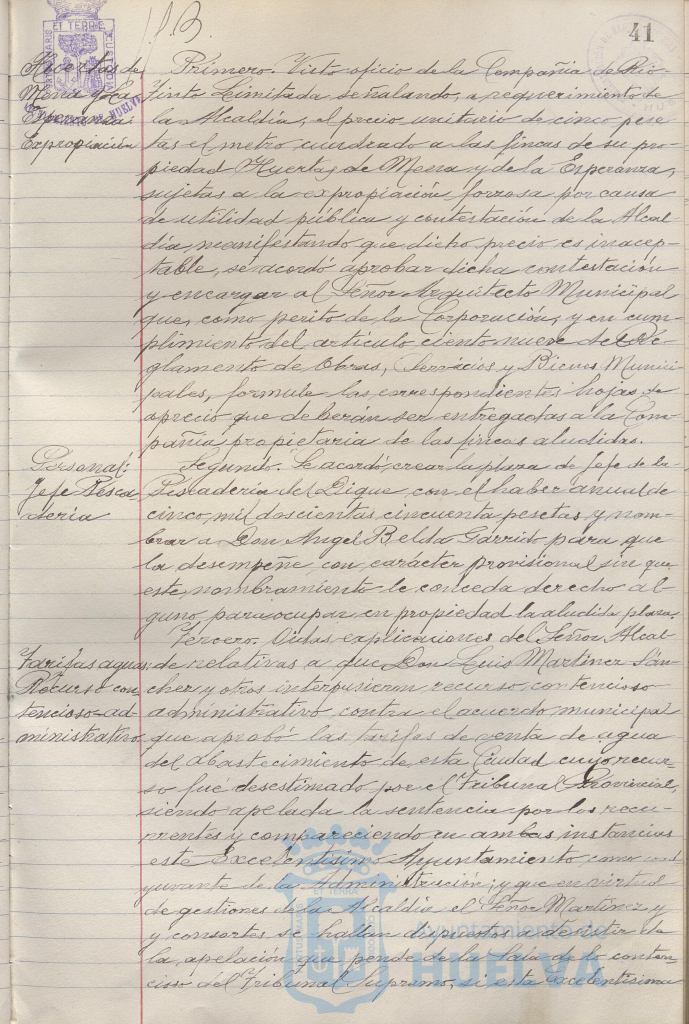 41
Huertas de
Mena y La
Esperanza:
Expropiación
Primero. Visto oficio de la Compañía de Rio-
Tinto Limitada señalando, a requerimiento de
la Alcaldía, el precio unitario de cinco pese
tas el metro cuadrado a las fincas de su pro-
piedad Huertas de Mena y de la Esperanza,
sujetas a la expropiación forzosa por causa
de utilidad pública y contestación de la Alcal-
día, manifestando que dicho precio es inacep-
table, se acordó aprobar dicha contestación
y encargar al Señor Arquitecto Municipal
que, como perito de la Corporación, y en cum-
plimiento del artículo ciento nueve del Re-
glamento de Obras, Servicios y Bienes Munici
pales, formule las correspondientes hojas de
aprecio que deberán ser entregadas a la Com-
pañía propietaria de las fincas aludidas.
Personal:
Jefe Pesca-
dería
Segundo. Se acordó crear la plaza de Jefe de la
Pescadería del Dique, con el haber anual de
cinco mil doscientas cincuenta pesetas y nom-
brar a Don Angel Belda Garrido para que
la desempeñe con carácter provisional sin que
este nombramiento le conceda derecho al-
guno para ocupar en propiedad la aludida plaza.
Tarifas aguas:
Recurso con
tencioso-ad-
ministrativo
Tercero. Oidas explicaciones del Señor Alcal-
de relativas a que Don Luis Martinez Sán-
chez y otros interpusieron recurso contencioso
administrativo contra el acuerdo municipal
que aprobó las tarifas de venta de agua
del abastecimiento de esta Ciudad cuyo recur-
so fué desestimado por el Tribunal Provincial,
siendo apelada la sentencia por los recu-
rrentes y compareciendo en ambas instancias
este Excelentísimo Ayuntamiento como coad
yuvante de la Administración; y que en virtud
de gestiones de la Alcaldía el Señor Martinez y
y consortes se hallan dispuestos a desistir de
la apelación que pende de la Sala de lo conten-
cioso del Tribunal Supremo, si esta Excelentísima
Ayuntamiento de
HUELVA